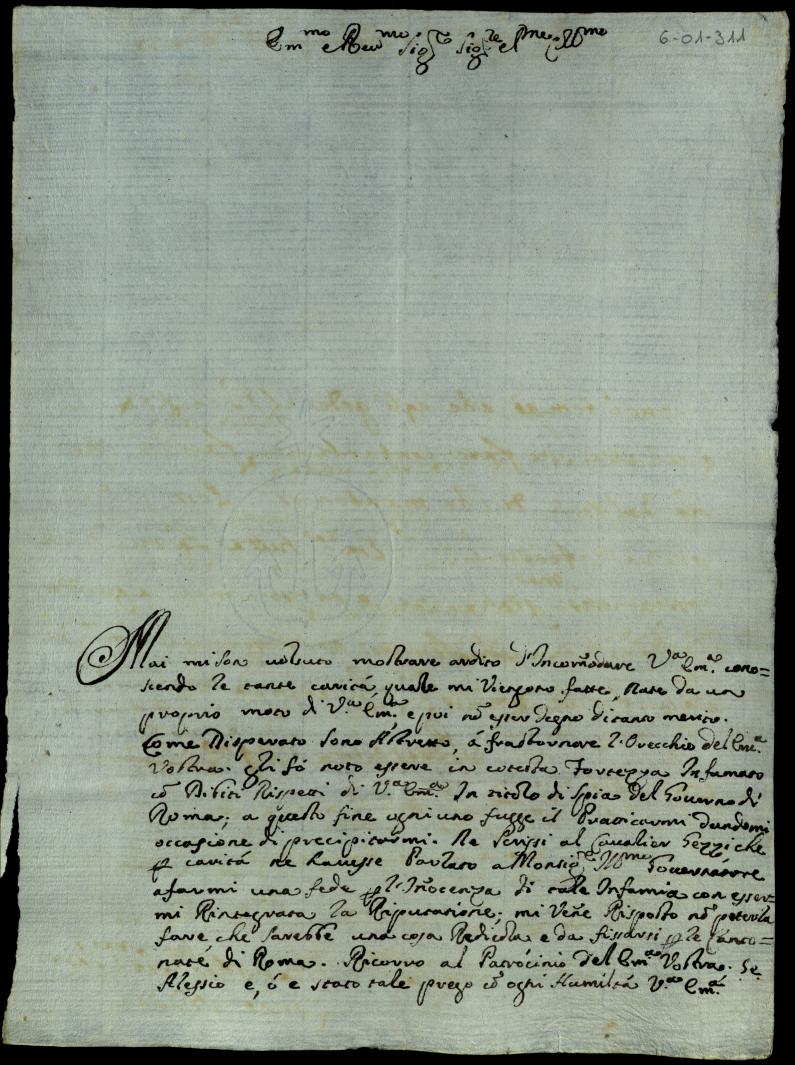 6-01-311
Em.mo e Rev.mo Sig.re Sig.re e P.ne Col.mo
Mai mi son voluto mostrare ardito d'Incom̃odare V.a Em.a cono=
scendo le tante carità, quale mi Vengono fatte, Nate da un
proprio moto di V.a Em.a e poi nõ esser degno di tanto merito.
Come Disperato sono Astretto, á frastornare l'Orecchio del Em.a
Vostra. Gli fó noto essere in cotesta Fortezza Infamato
cõ Debiti Rispetti di V.a Em.a In titolo di Spia del Governo di
Roma; a questo fine ogni uno fugge il Praticarmi dandomi
occasione di precipitarmi. Ne Scrissi al Cavalier Gezzi che
p carità ne havesse Parlato a Monsig.re Ill.mo Governatore
a farmi una fede p l'Iñocenza di tale Infamia con esser=
mi Rintegrata la Riputatione; mi Vene Risposto nõ poterla
fare, che sarebbe una cosa Redicola e da fissarsi p le Canto=
nate di Roma. Ricorro al Patrocinio del Em.a Vostra. Se
Alessio e, ó e stato tale prego cõ ogni Humiltà V.a Em.a